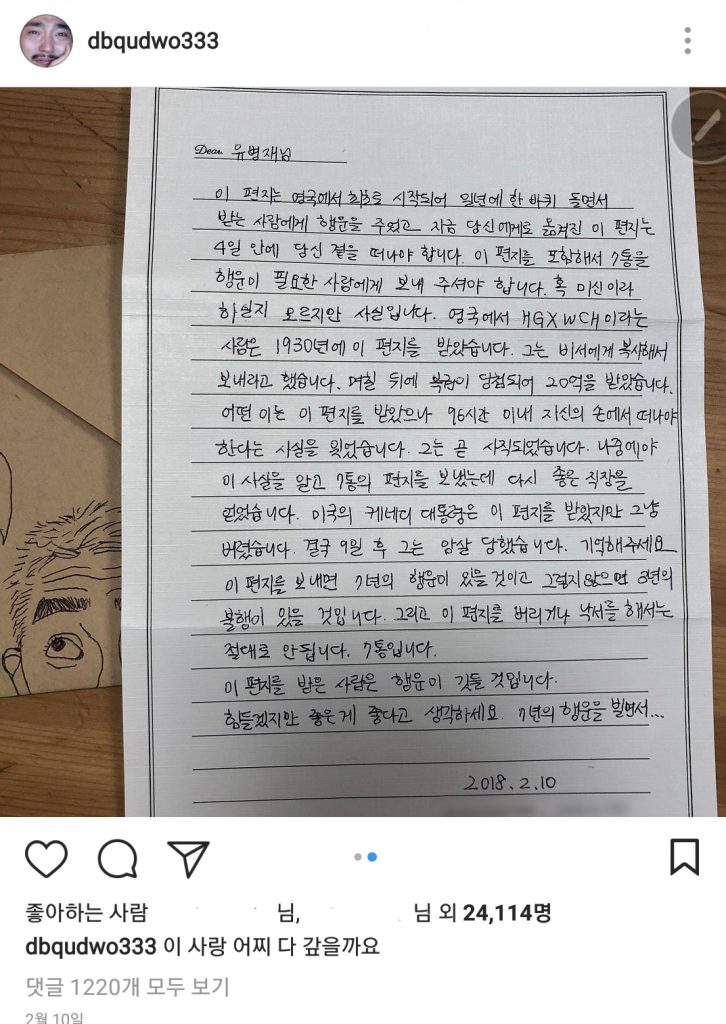 dbqudwo333
Dear. 유병재님
이 편지는 영국에서 최초로 시작되어 일년에 한 바퀴 돌면서
받는 사람에게 행운을 주었고 지금 당신에게로 옮겨진 이 편지는
4일 안에 당신 곁을 떠나야 합니다. 이 편지를 포함해서 7통을
행운이 필요한 사람에게 보내 주셔야 합니다. 혹 미신이라
하실지 모르지만 사실입니다. 영국에서 HGXWCH이라는
사람은 1930년에 이 편지를 받았습니다. 그는 비서에게 복사해서
보내라고 했습니다. 며칠 뒤에 복권이 당첨되어 20억을 받았습니다.
어떤 이는 이 편지를 받았으나 96시간 이내 자신의 손에서 떠나야
한다는 사실을 잊었습니다. 그는 곧 사직되었습니다. 나중에야
이 사실을 알고 7통의 편지를 보냈는데 다시 좋은 직장을
얻었습니다. 미국의 케네디 대통령은 이 편지를 받았지만 그냥
버렸습니다. 결국 9일 후 그는 암살 당했습니다. 기억해주세요
이 편지를 보내면 7년의 행운이 있을 것이고 그렇지않으면 3년의
불행이 있을 것입니다. 그리고 이 편지를 버리거나 낙서를 해서는
절대로 안됩니다. 7통입니다.
이 편지를 받은 사람은 행운이 깃들 것입니다.
힘들겠지만 좋은게 좋다고 생각하세요. 7년의 행운을 빌면서...
2018.2.10
좋아하는 사람 님, 님 외 24,114명
dbqudwo333 이 사랑 어찌 다 갚을까요
댓글 1220개 모두 보기
2월 10일